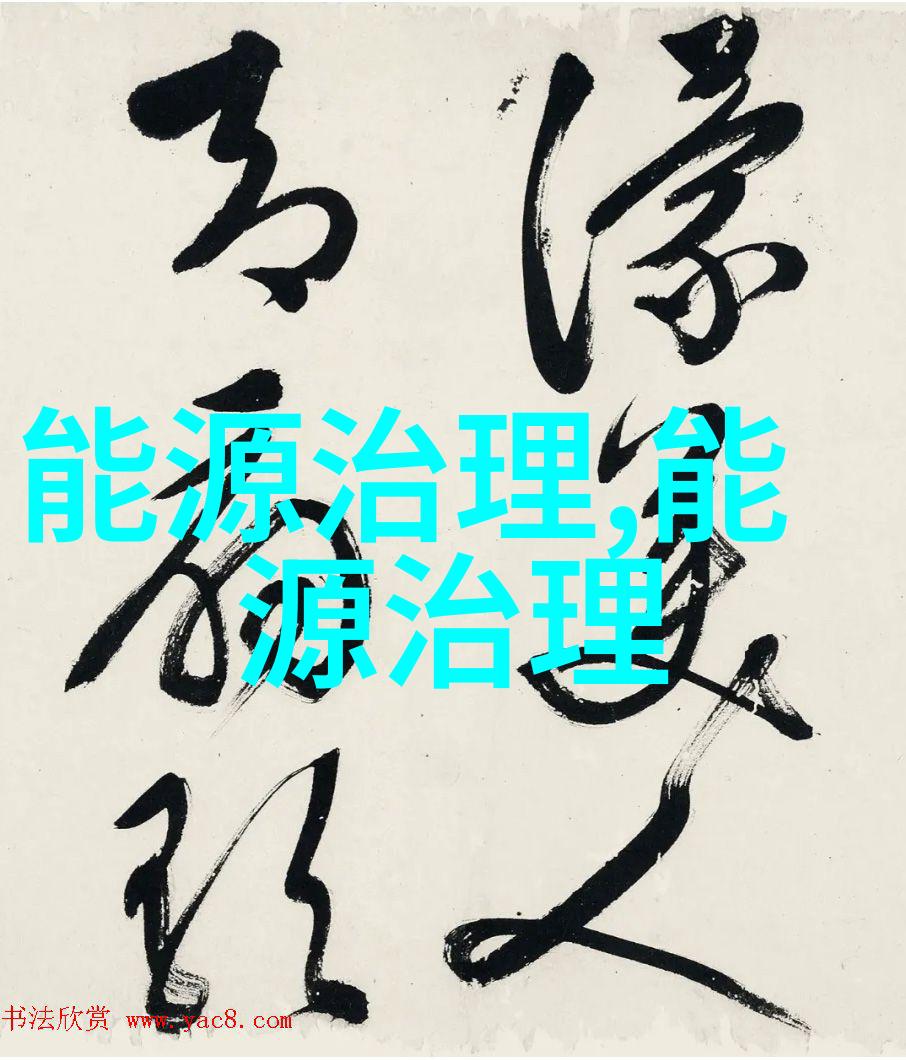 能源治理,能
源治理
美人
书法欣赏 www.yac8.com